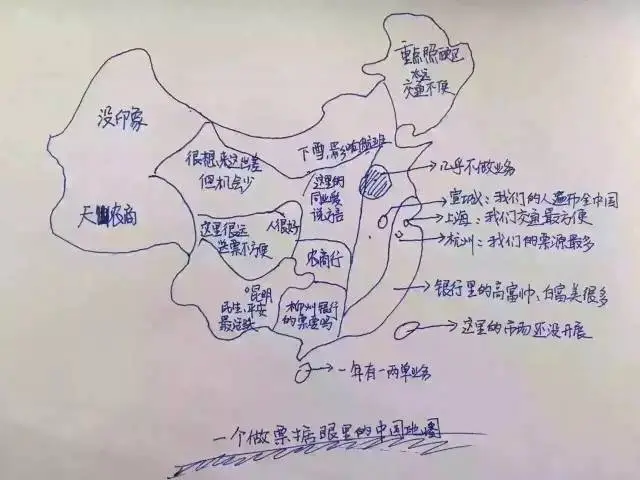 重点照顾区
太远
交通不便
没印象
很想来这出差
但机会少
下雪,影响航班
几乎不做业务
这里的
同业爱
说方言
宣城:我们的人遍布全国
上海:我们交通最方便
杭州:我们的票源最多
天 农商
这里很远
送票不方便
人很好
农商行
昆明
民生、平安
最活跃
柳州银行
的票要吗
银行里的高富帅、白富美很多
这里的市场还没开展
一年有一两单业务
一个做票据眼里的中国地图